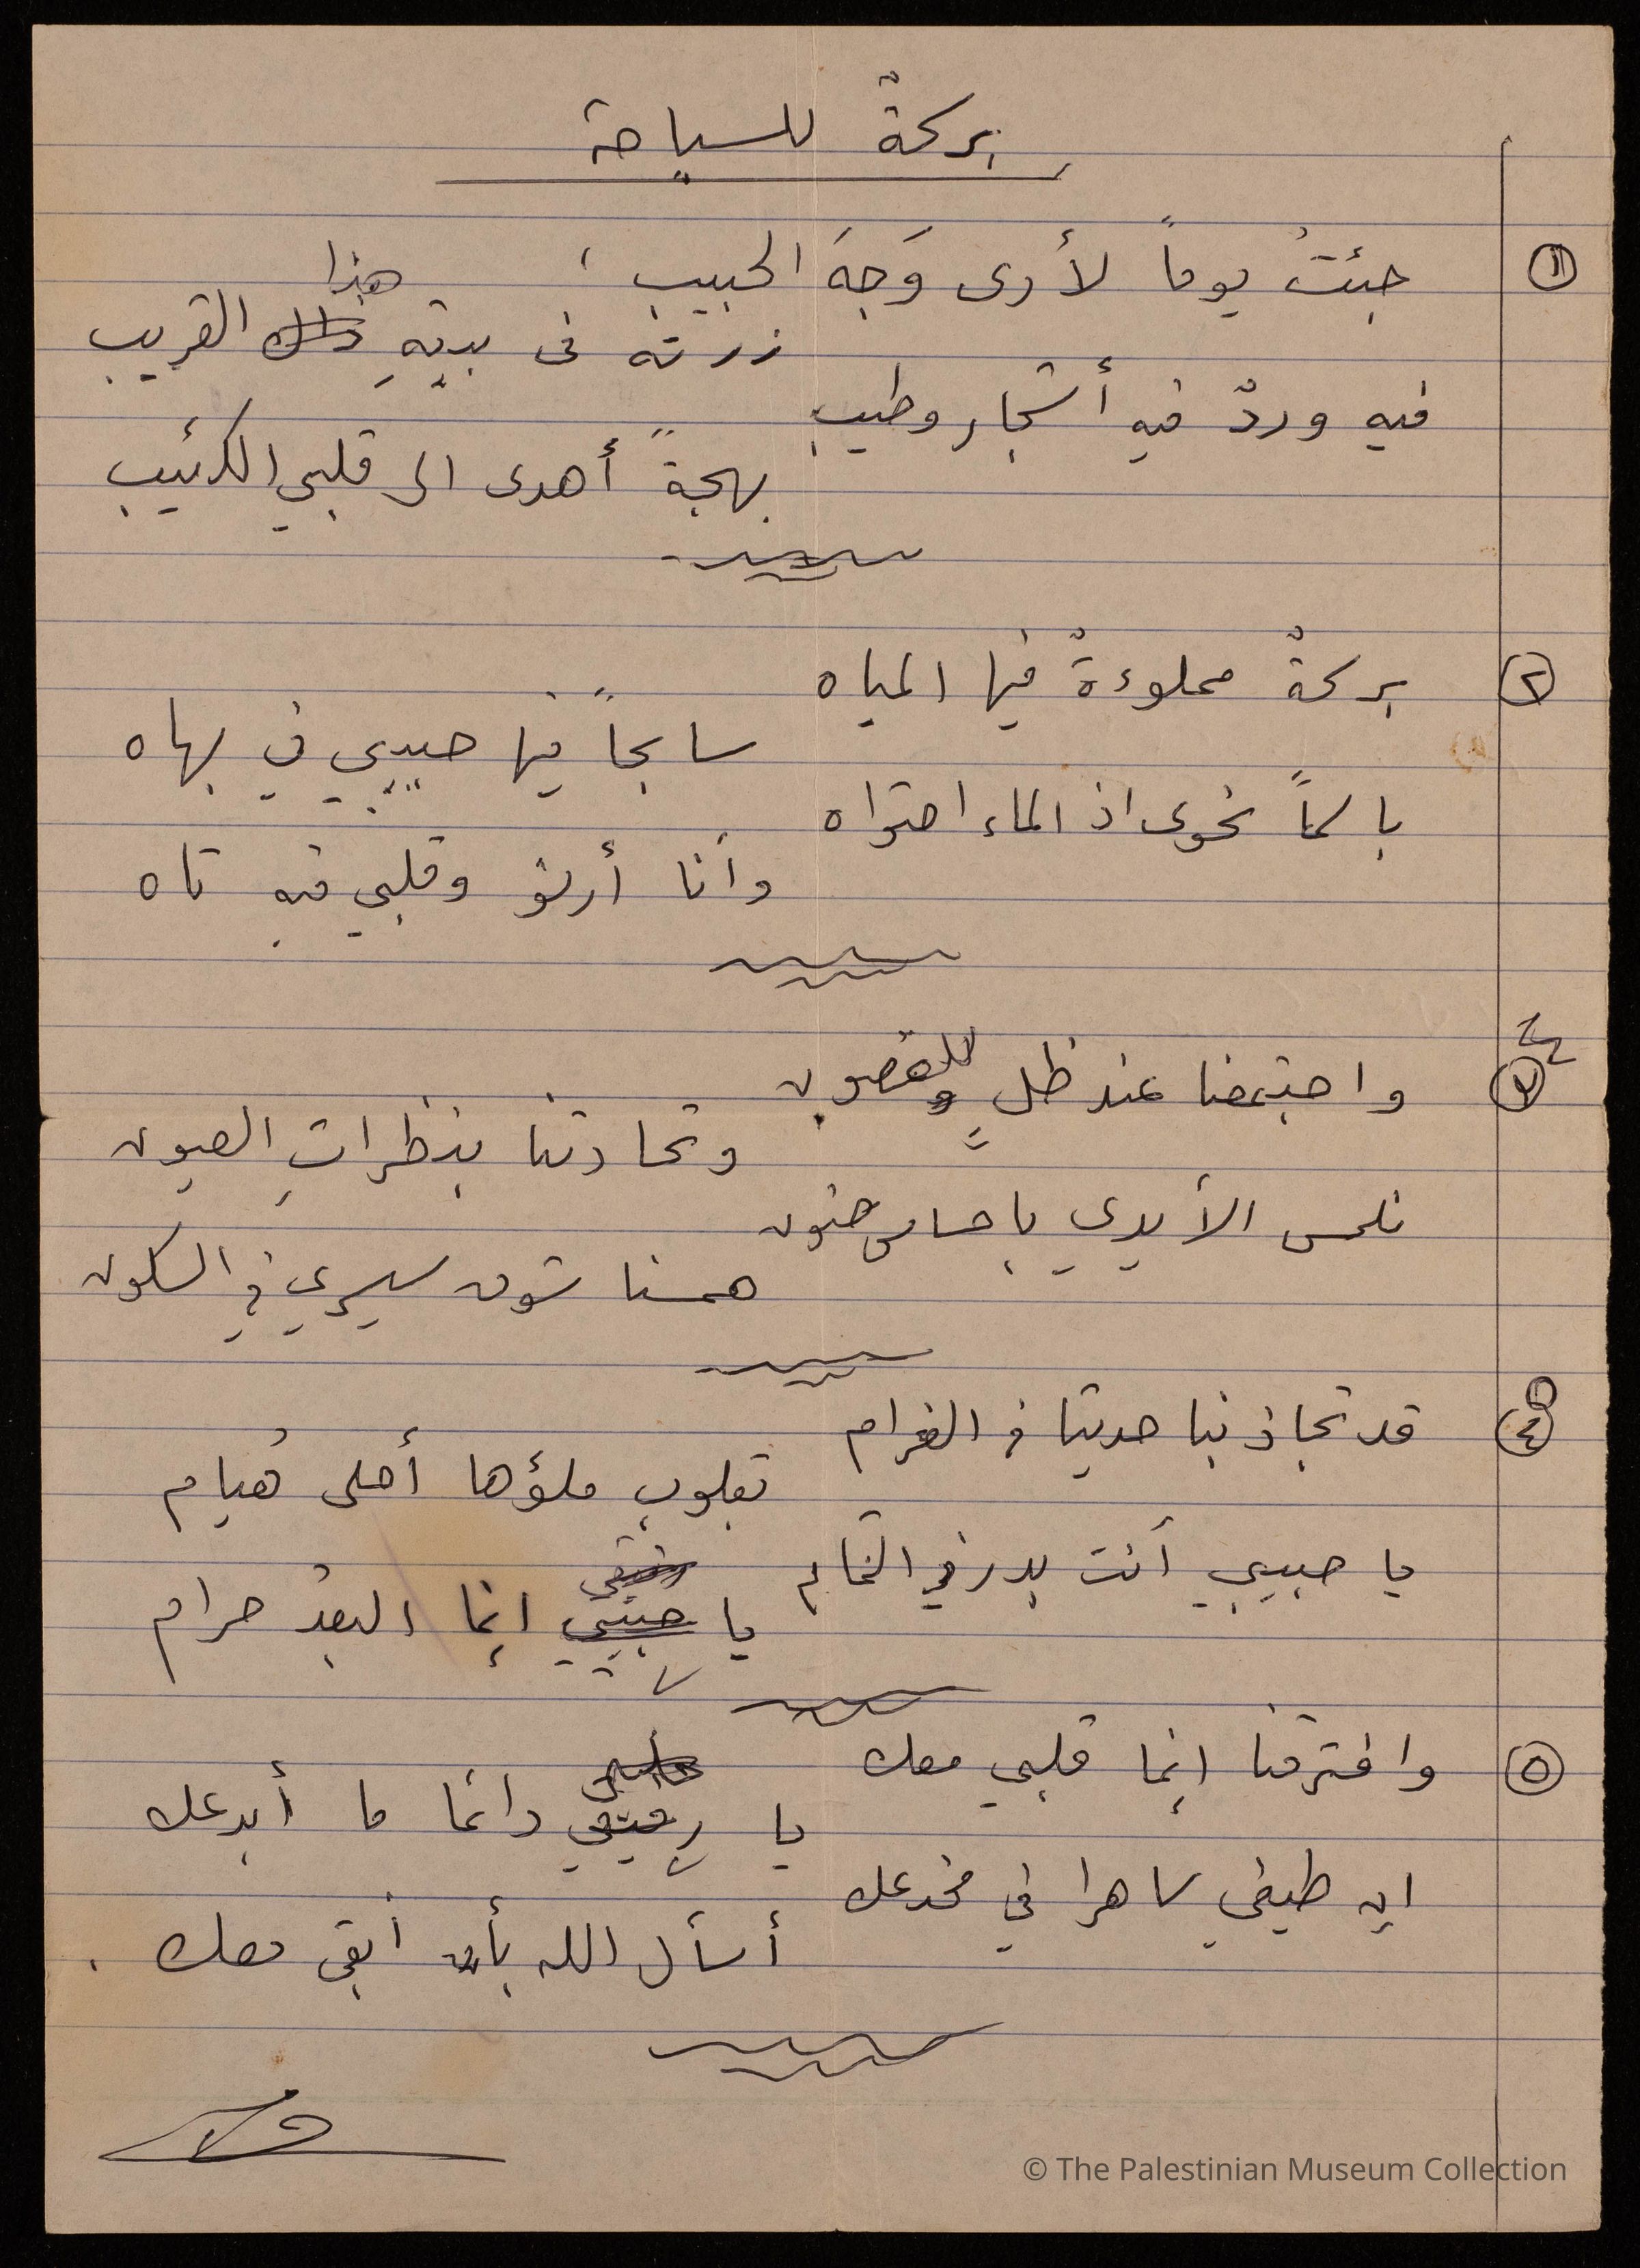 بركةٌ للسباحة
١ جئتُ يوماً لأرى وَجهَ الحبيب ؛
هذا
زرته في بيتِهِ ذلك القريب
فيه وردٌ فيه أشجار وطيب
بهجةً أهدى الى قلبي الكئيب
٢ بركةٌ مملوءةٌ فيها المياه
سابحاً فيها حبيبي في بهاه
باسماً نحوى اذ الماء احتواه
وأنا أرنو وقلبي فيه تاه
٣ واجتمعنا عند ظلٍ للغصون
وتحادثنا بنظراتِ العيون
نلمس الأيدي باحساس حنون
همسنا شوق يسري في السكون
٤ قد تجاذبنا حديثا في الغرام
بقلوبٍ ملؤها أحلى هُيام
يا حبيبي أنت بدر في التمام
يا حبيبي إنما البعدُ حرام
٥ وافترقنا إنما قلبي معك
يا رفيقي دائما ما أبدعك
ان طيفي ساهرا في مخدعك
أسأل الله بأن أبقى معك .
© The Palestinian Museum Collection